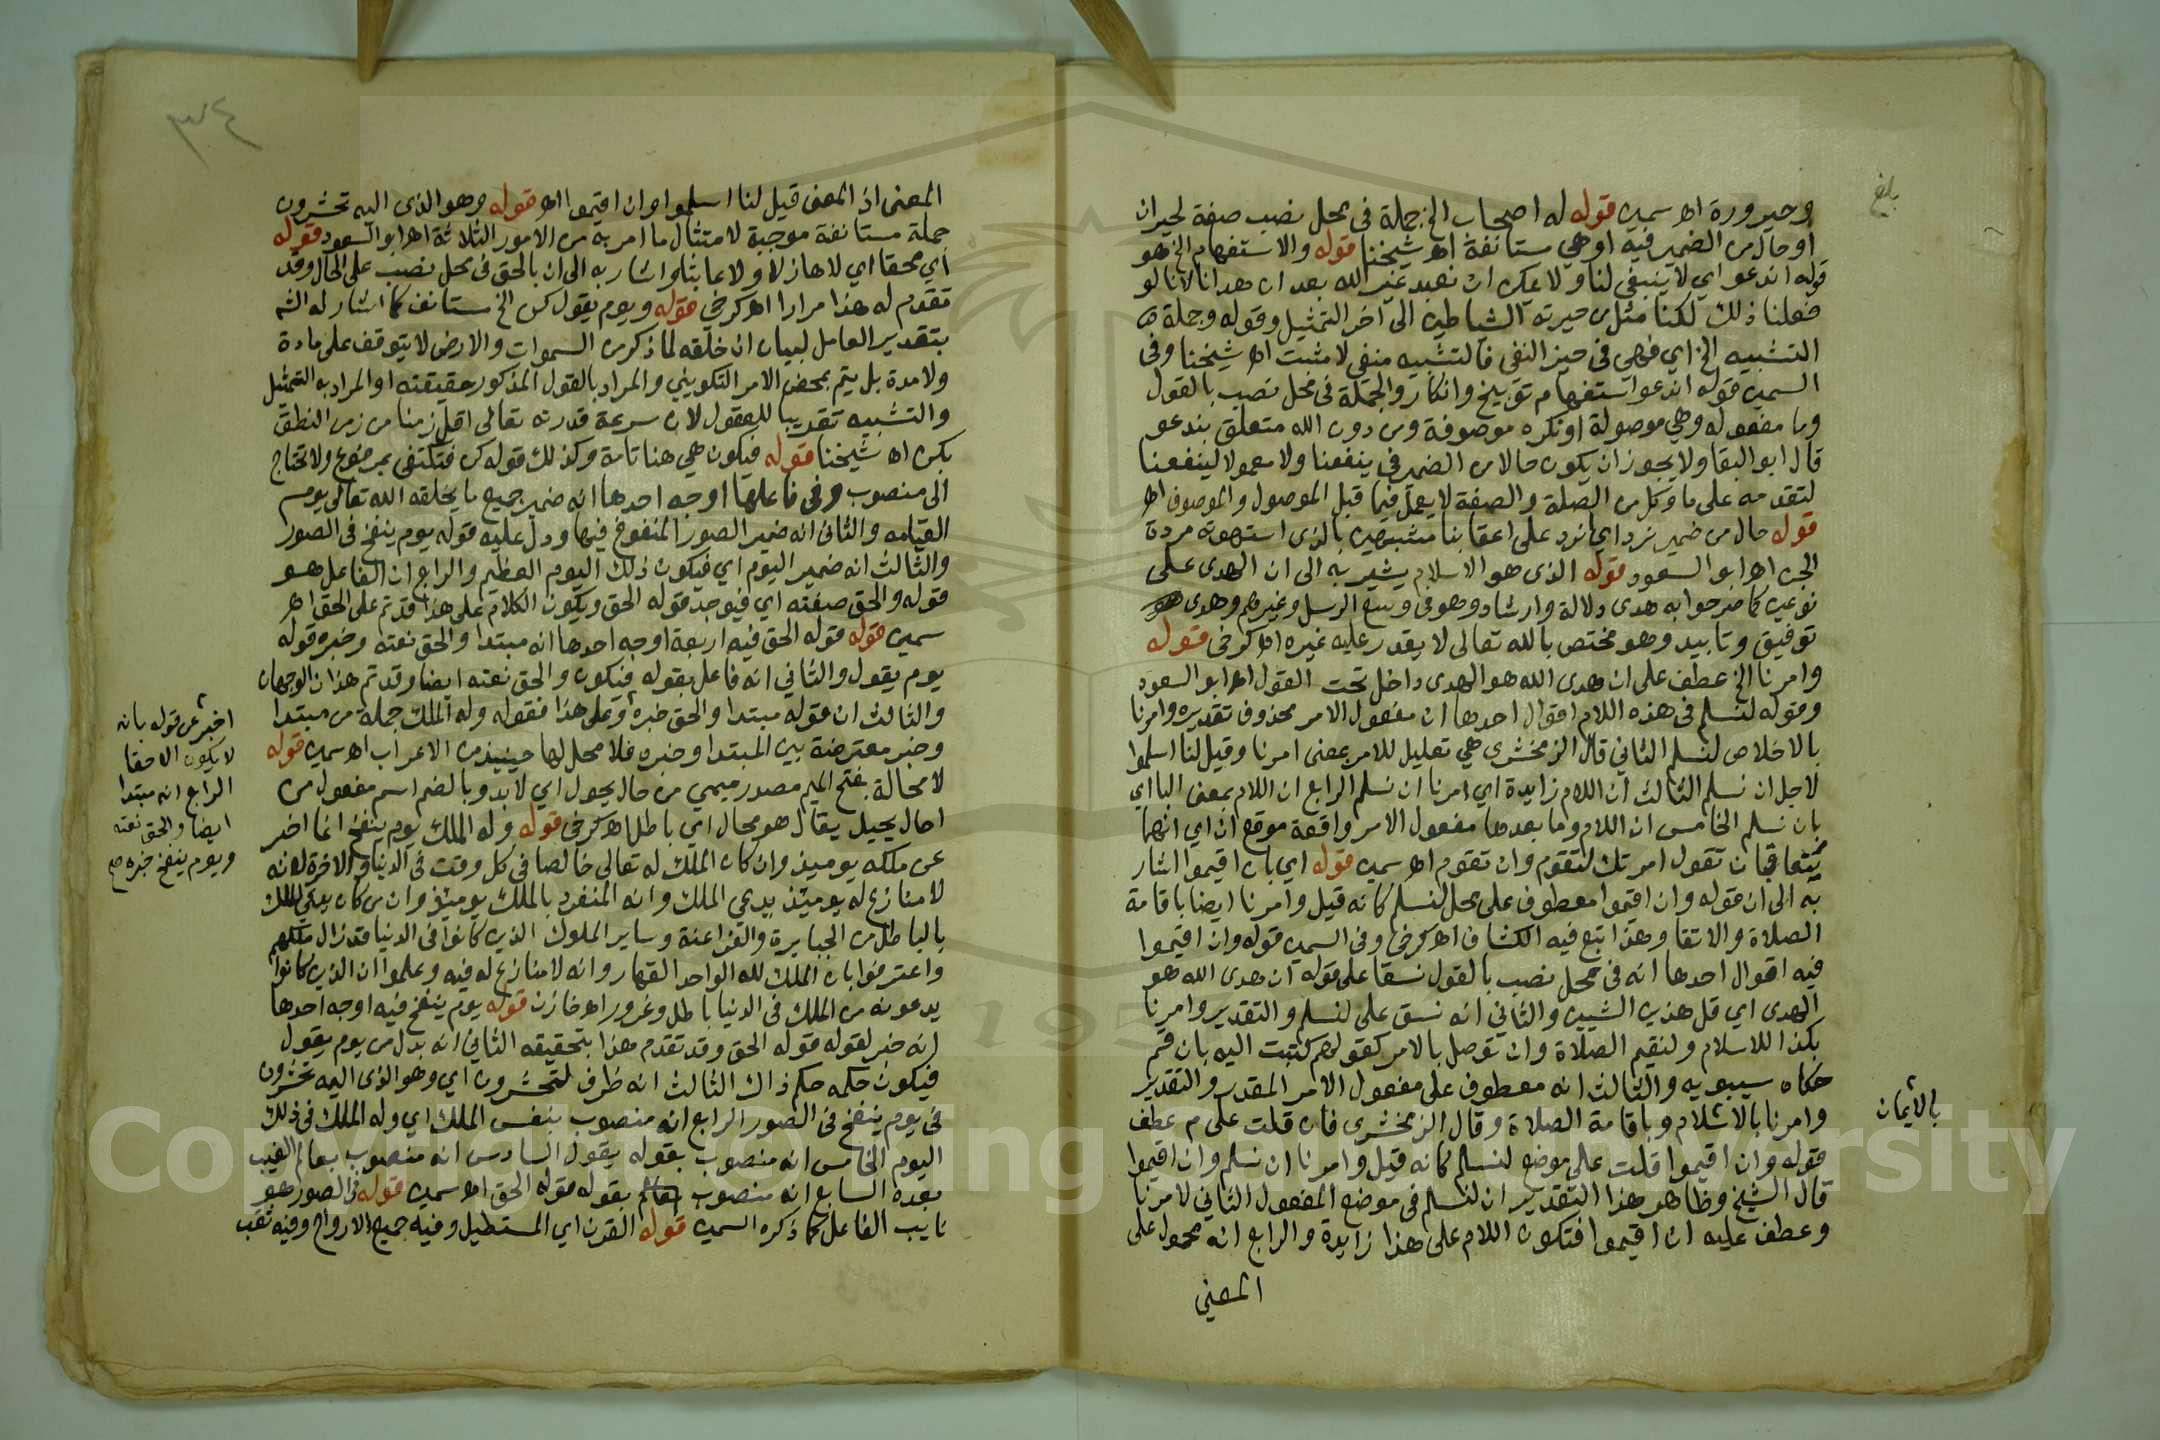 بلغ
وحيرورة اهـ سمين قوله له اصحاب الخ جملة في محل نصب صفة لحيران
او حال من الضمير فيه او هي مستانفة اهـ شيخنا قوله والاستفهام الخ هو
قوله اندعو اي لا ينبغي لنا ولا يمكن ان نعبد غير الله بعد ان هدانا لانا لو
فعلنا ذلك لكنا مثل من حيرته الشياطين الى آخر التمثيل وقوله وجملة
التشبيه الخ اي فهي في حيز النفي فالتشبيه منفي لا مثبت اهـ شيخنا وفي
السمين قوله اندعوا استفهام توبيخ وانكار والجملة في محل نصب بالقول
وما مفعوله وهي موصولة او نكرة موصوفة ومن دون الله متعلق بندعو
قال ابو البقا ولا يجوز ان يكون حالا من الضمير في ينفعنا ولا معمولا لينفعنا
لتقدمه على ما وكل من الصلة والصفة لا يعمل فيما قبل الموصول والموصوف اهـ
قوله حال من ضمير نرد اي نرد على اعقابنا مشبهين بالذي استهوته مردة
الجن اهـ ابو السعود قوله الذي هو الاسلام يشير به الى ان الهدى على
نوعين كما صرحوا به هدى دلالة وارشاد وهو في وسع الرسل وغيرهم وهدى هو
توفيق وتاييد وهو مختص بالله تعالى لا يقدر عليه غيره اهـ كرخي قوله
وامرنا الخ عطف على ان هدى الله هو الهدى داخل تحت القول اهـ ابو السعود
وقوله لنسلم في هذه اللام اقوال احدها ان مفعول الامر محذوف تقديره وامرنا
بالاخلاص لنسلم الثاني قال الزمخشري هي تعليل للامر بمعنى امرنا وقيل لنا اسلموا
لاجل ان نسلم الثالث ان اللام زايدة اي امرنا ان نسلم الرابع ان اللام بمعنى البا اي
بان نسلم الخامس ان اللام وما بعدها مفعول الامر واقعة موقع ان اي انهما
يتعاقبان تقول امرتك لتقوم وان تقوم اهـ سمين قوله اي بان اقيموا اشار
به الى ان قوله وان اقيموا معطوف على محل لنسلم كانه قيل وامرنا ايضا باقامة
الصلاة والاتقا وهذا تبع فيه الكشاف اهـ كرخي وفي السمين قوله وان اقيموا
فيه اقوال احدها انه في محل نصب بالقول نسقا على قوله ان هدى الله هو
الهدى اي قل هذين الشيين والثاني انه نسق على لنسلم والتقدير وامرنا
بكذا للاسلام ولنقيم الصلاة وان توصل بالامر كقولهم كتبت اليه بان قم
حكاه سيبويه والثالث انه معطوف على مفعول الامر المقدر والتقدير
وامرنا بالاسلام وباقامة الصلاة وقال الزمخشري فان قلت على م عطف
بالايمان
قوله وان اقيموا قلت على موضع لنسلم كانه قيل وامرنا ان نسلم وان اقيموا
قال الشيخ وظاهر هذا التقدير ان لنسلم في موضع المفعول الثاني لامرنا
وعطف عليه ان اقيموا فتكون اللام على هذا زايدة والرابع انه محمول على
المعنى
٣٤
المعنى اذ المعنى قيل لنا اسلموا وان اقيموا اهـ قوله وهو الذي اليه تحشرون
جملة مستانفة موجبة لامتثال ما امر به من الامور الثلاثة اهـ ابو السعود قوله
اي محقا اي لا هازلا ولا عابثا واشار به الى ان بالحق في محل نصب على الحال وقد
تقدم له هذا مرارا اهـ كرخي قوله ويوم يقول كن الخ مستانف كما اشار له الشه
بتقدير العامل لبيان ان خلقه لما ذكر من السموات والارض لا يتوقف على مادة
ولا مدة بل يتم بمحض الامر التكويني والمراد بالقول المذكور حقيقته او المراد به التمثيل
والتشبيه تقريبا للعقول لان سرعة قدرته تعالى اقل زمنا من زمن النطق
بكن اهـ شيخنا قوله فيكون هي هنا تامة وكذلك قوله كن فتكتفي بمرفوع ولا تحتاج
الى منصوب وفي فاعلها اوجه احدها انه ضمير جميع ما يخلقه الله تعالى يوم
القيامه والثاني انه ضمير الصور المنفوخ فيها ودل عليه قوله يوم ينفخ في الصور
والثالث انه ضمير اليوم اي فيكون ذلك اليوم العظيم والرابع ان الفاعل هو
قوله والحق صفته اي فيوجد قوله الحق ويكون الكلام على هذا قد تم على الحق اهـ
سمين قوله قوله الحق فيه اربعة اوجه احدها انه مبتدا والحق نعته وخبره قوله
يوم يقول والثاني انه فاعل بقوله فيكون والحق نعته ايضا وقد تم هذان الوجهان
والثالث ان قوله مبتدا والحق خبره وعلى هذا فقوله وله الملك جملة من مبتدا
وخبر معترضة بين المبتدا وخبره فلا محل لها حينيذ من الاعراب اهـ سمين قوله
اخبر عن قوله بانه
لا يكون الا حقا
الرابع انه مبتدا
ايضا والحق نعته
ويوم ينفخ خبره صح
لا محالة بفتح الميم مصدر ميمي من حال يحول اي لا بد وبالضم اسم مفعول من
احال يحيل يقال هو محال اي باطل اهـ كرخي قوله وله الملك يوم ينفخ انما اخبر
عن ملكه يوميذ وان كان الملك له تعالى خالصا في كل وقت في الدنيا والاخرة لانه
لا منازع له يوميذ يدعي الملك وانه المنفرد بالملك يوميذ وان من كان يدعي الملك
بالباطل من الجبابرة والفراعنة وساير الملوك الذين كانوا في الدنيا قد زال ملكهم
واعترفوا بان الملك لله الواحد القهار وانه لا منازع له فيه وعلموا ان الذين كانوا
يدعونه من الملك في الدنيا باطل وغرور اهـ خازن قوله يوم ينفخ فيه اوجه احدها
انه خبر لقوله قوله الحق وقد تقدم هذا بتحقيقه الثاني انه بدل من يوم يقول
فيكون حكمه حكم ذاك الثالث انه ظرف لتحشرون اي وهو الذي اليه تحشرون
في يوم ينفخ في الصور الرابع انه منصوب بنفس الملك اي وله الملك في ذلك
اليوم الخامس انه منصوب بقوله يقول السادس انه منصوب بعالم الغيب
بعده السابع انه منصوب بقوله قوله الحق اهـ سمين قوله في الصور هو
نايب الفاعل كما ذكره السمين قوله القرن اي المستطيل وفيه جميع الارواح وفيه ثقب
Copyright © King Saud University